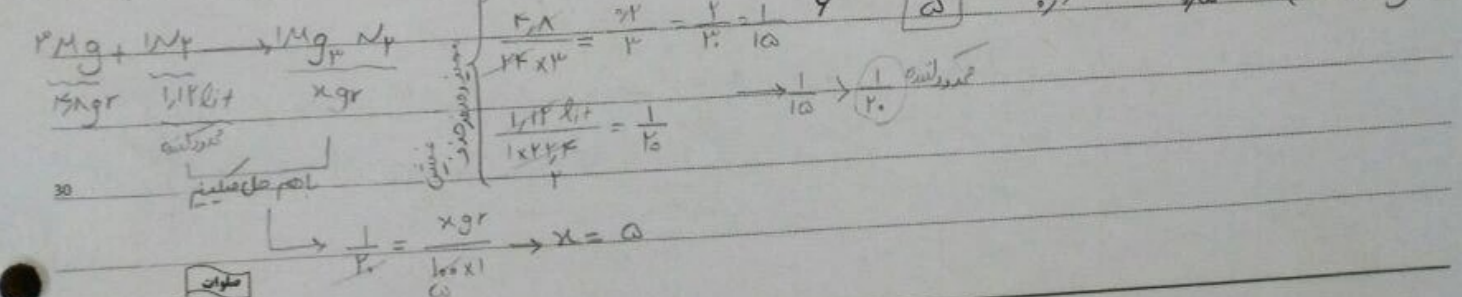 ۳Mg + ۱N₂ → ۱Mg₃N₂
۴٫۸gr ۱٫۱۲lit xgr
محدودکننده
باهم حل میکنیم
۴٫۸ / ۲۴×۳ = ۰٫۲ / ۳ = ۲ / ۳۰ = ۱ / ۱۵ ۶ ۵
۱٫۱۲ lit / ۱×۲۲٫۴ = ۱ / ۲۰
۲
→ ۱ / ۱۵ > ۱ / ۲۰ محدودکننده
30
→ ۱ / ۲۰ = xgr / ۱۰۰×۱ → x = ۵
۵
صلوات